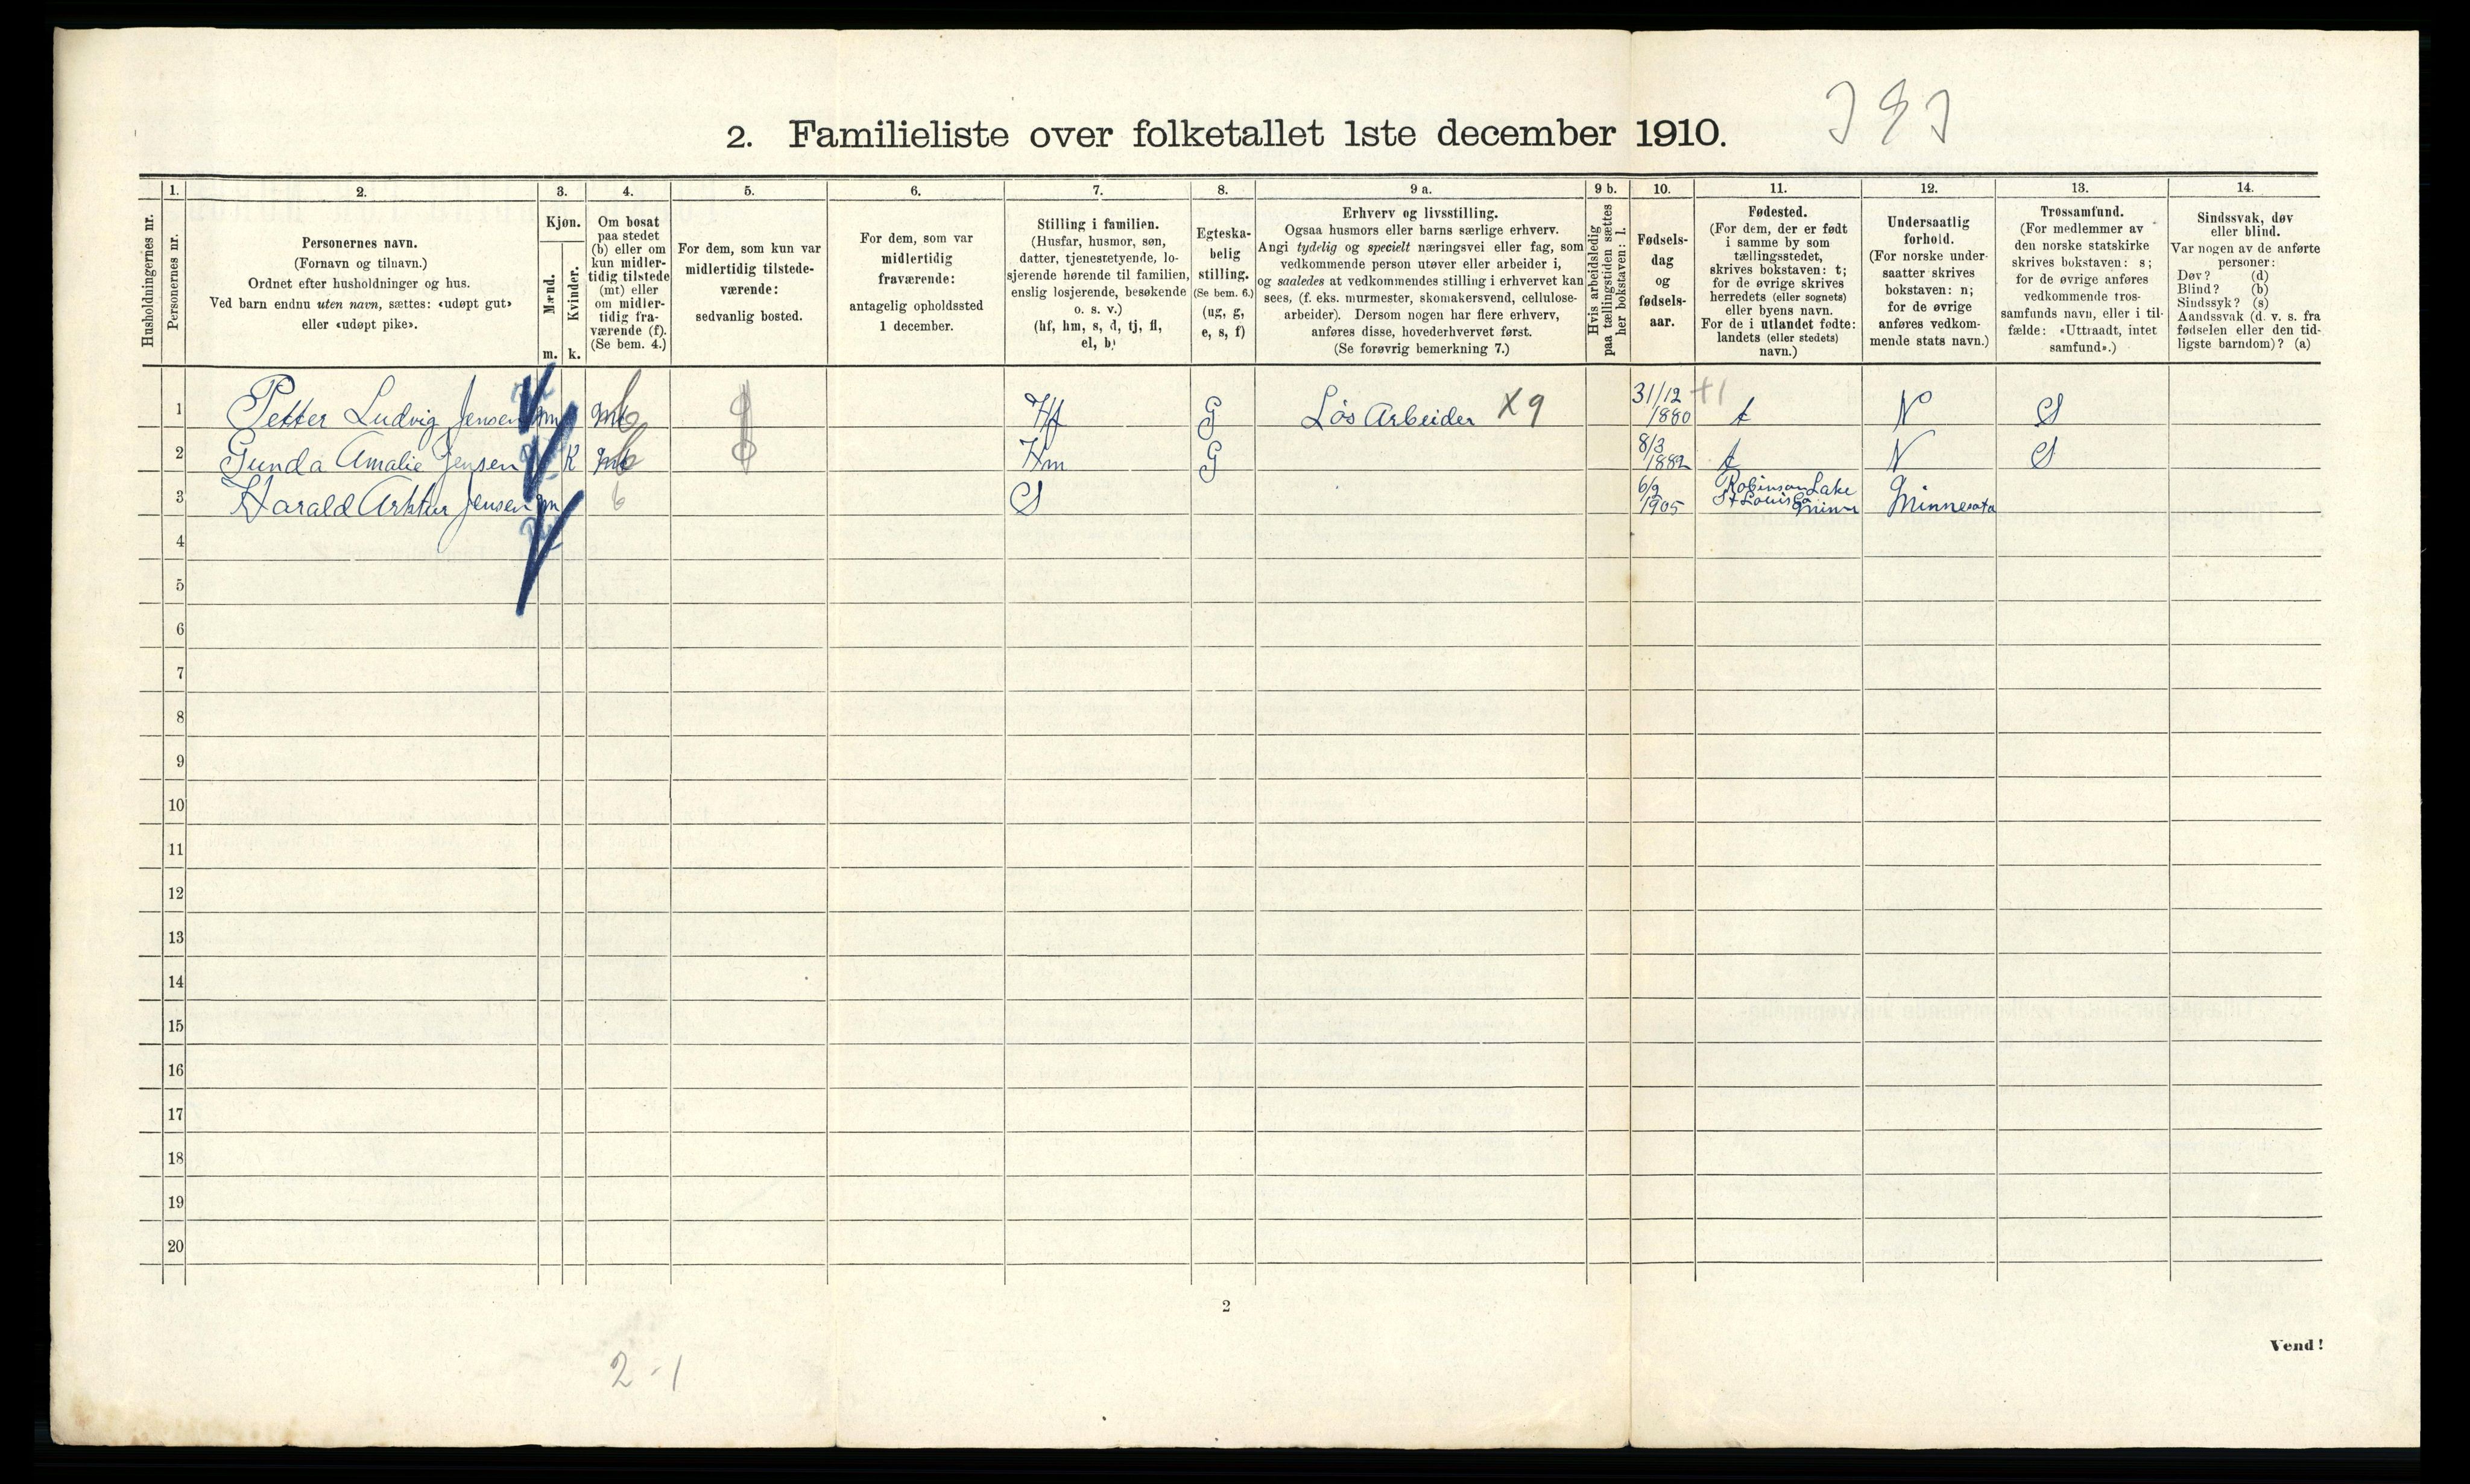 2. Familieliste over folketallet 1ste december 1910.
1. 2. 3. 4. 5. 6. 7. 8. 9 a. 9 b. 10. 11. 12. 13. 14.
Husholdningernes nr.
Personernes nr.
Personernes navn.
(Fornavn og tilnavn.)
Ordnet efter husholdninger og hus.
Ved barn endnu uten navn, sættes: «udøpt gut»
eller «udøpt pike».
Kjøn.
Mænd.
Kvinder.
m. k.
Om bosat
paa stedet
(b) eller om
kun midler-
tidig tilstede
(mt) eller
om midler-
tidig fra-
værende (f).
(Se bem. 4.)
For dem, som kun var
midlertidig tilstede-
værende:
sedvanlig bosted.
For dem, som var
midlertidig
fraværende:
antagelig opholdssted
1 december.
Stilling i familien.
(Husfar, husmor, søn,
datter, tjenestetyende, lo-
sjerende hørende til familien,
enslig losjerende, besøkende
o. s. v.)
(hf, hm, s, d, tj, fl,
el, b)
Egteska-
belig
stilling.
(Se bem. 6.)
(ug, g,
e, s, f)
Erhverv og livsstilling.
Ogsaa husmors eller barns særlige erhverv.
Angi tydelig og specielt næringsvei eller fag, som
vedkommende person utøver eller arbeider i,
og saaledes at vedkommendes stilling i erhvervet kan
sees, (f. eks. murmester, skomakersvend, cellulose-
arbeider). Dersom nogen har flere erhverv,
anføres disse, hovederhvervet først.
(Se forøvrig bemerkning 7.)
Hvis arbeidsledig
paa tællingstiden sættes
her bokstaven: l.
Fødsels-
dag
og
fødsels-
aar.
Fødested.
(For dem, der er født
i samme by som
tællingsstedet,
skrives bokstaven: t;
for de øvrige skrives
herredets (eller sognets)
eller byens navn.
For de i utlandet fødte:
landets (eller stedets)
navn.)
Undersaatlig
forhold.
(For norske under-
saatter skrives
bokstaven: n;
for de øvrige
anføres vedkom-
mende stats navn.)
Trossamfund.
(For medlemmer av
den norske statskirke
skrives bokstaven: s;
for de øvrige anføres
vedkommende tros-
samfunds navn, eller i til-
fælde: «Uttraadt, intet
samfund».)
Sindssvak, døv
eller blind.
Var nogen av de anførte
personer:
Døv? (d)
Blind? (b)
Sindssyk? (s)
Aandssvak (d. v. s. fra
fødselen eller den tid-
ligste barndom)? (a)
1 Petter Ludvig Jensen m mt b Hf G Løs Arbeider X9 31/12 1880 t N S
2 Gunda Amalie Jensen K mt b Hm G 8/3 1882 t N S
3 Harald Arhtur Jensen m b S 6/9 1905 Robinson Lake St Louis Co Minn Minnesota
4
5
6
7
8
9
10
11
12
13
14
15
16
17
18
19
20
2
Vend!
2-1